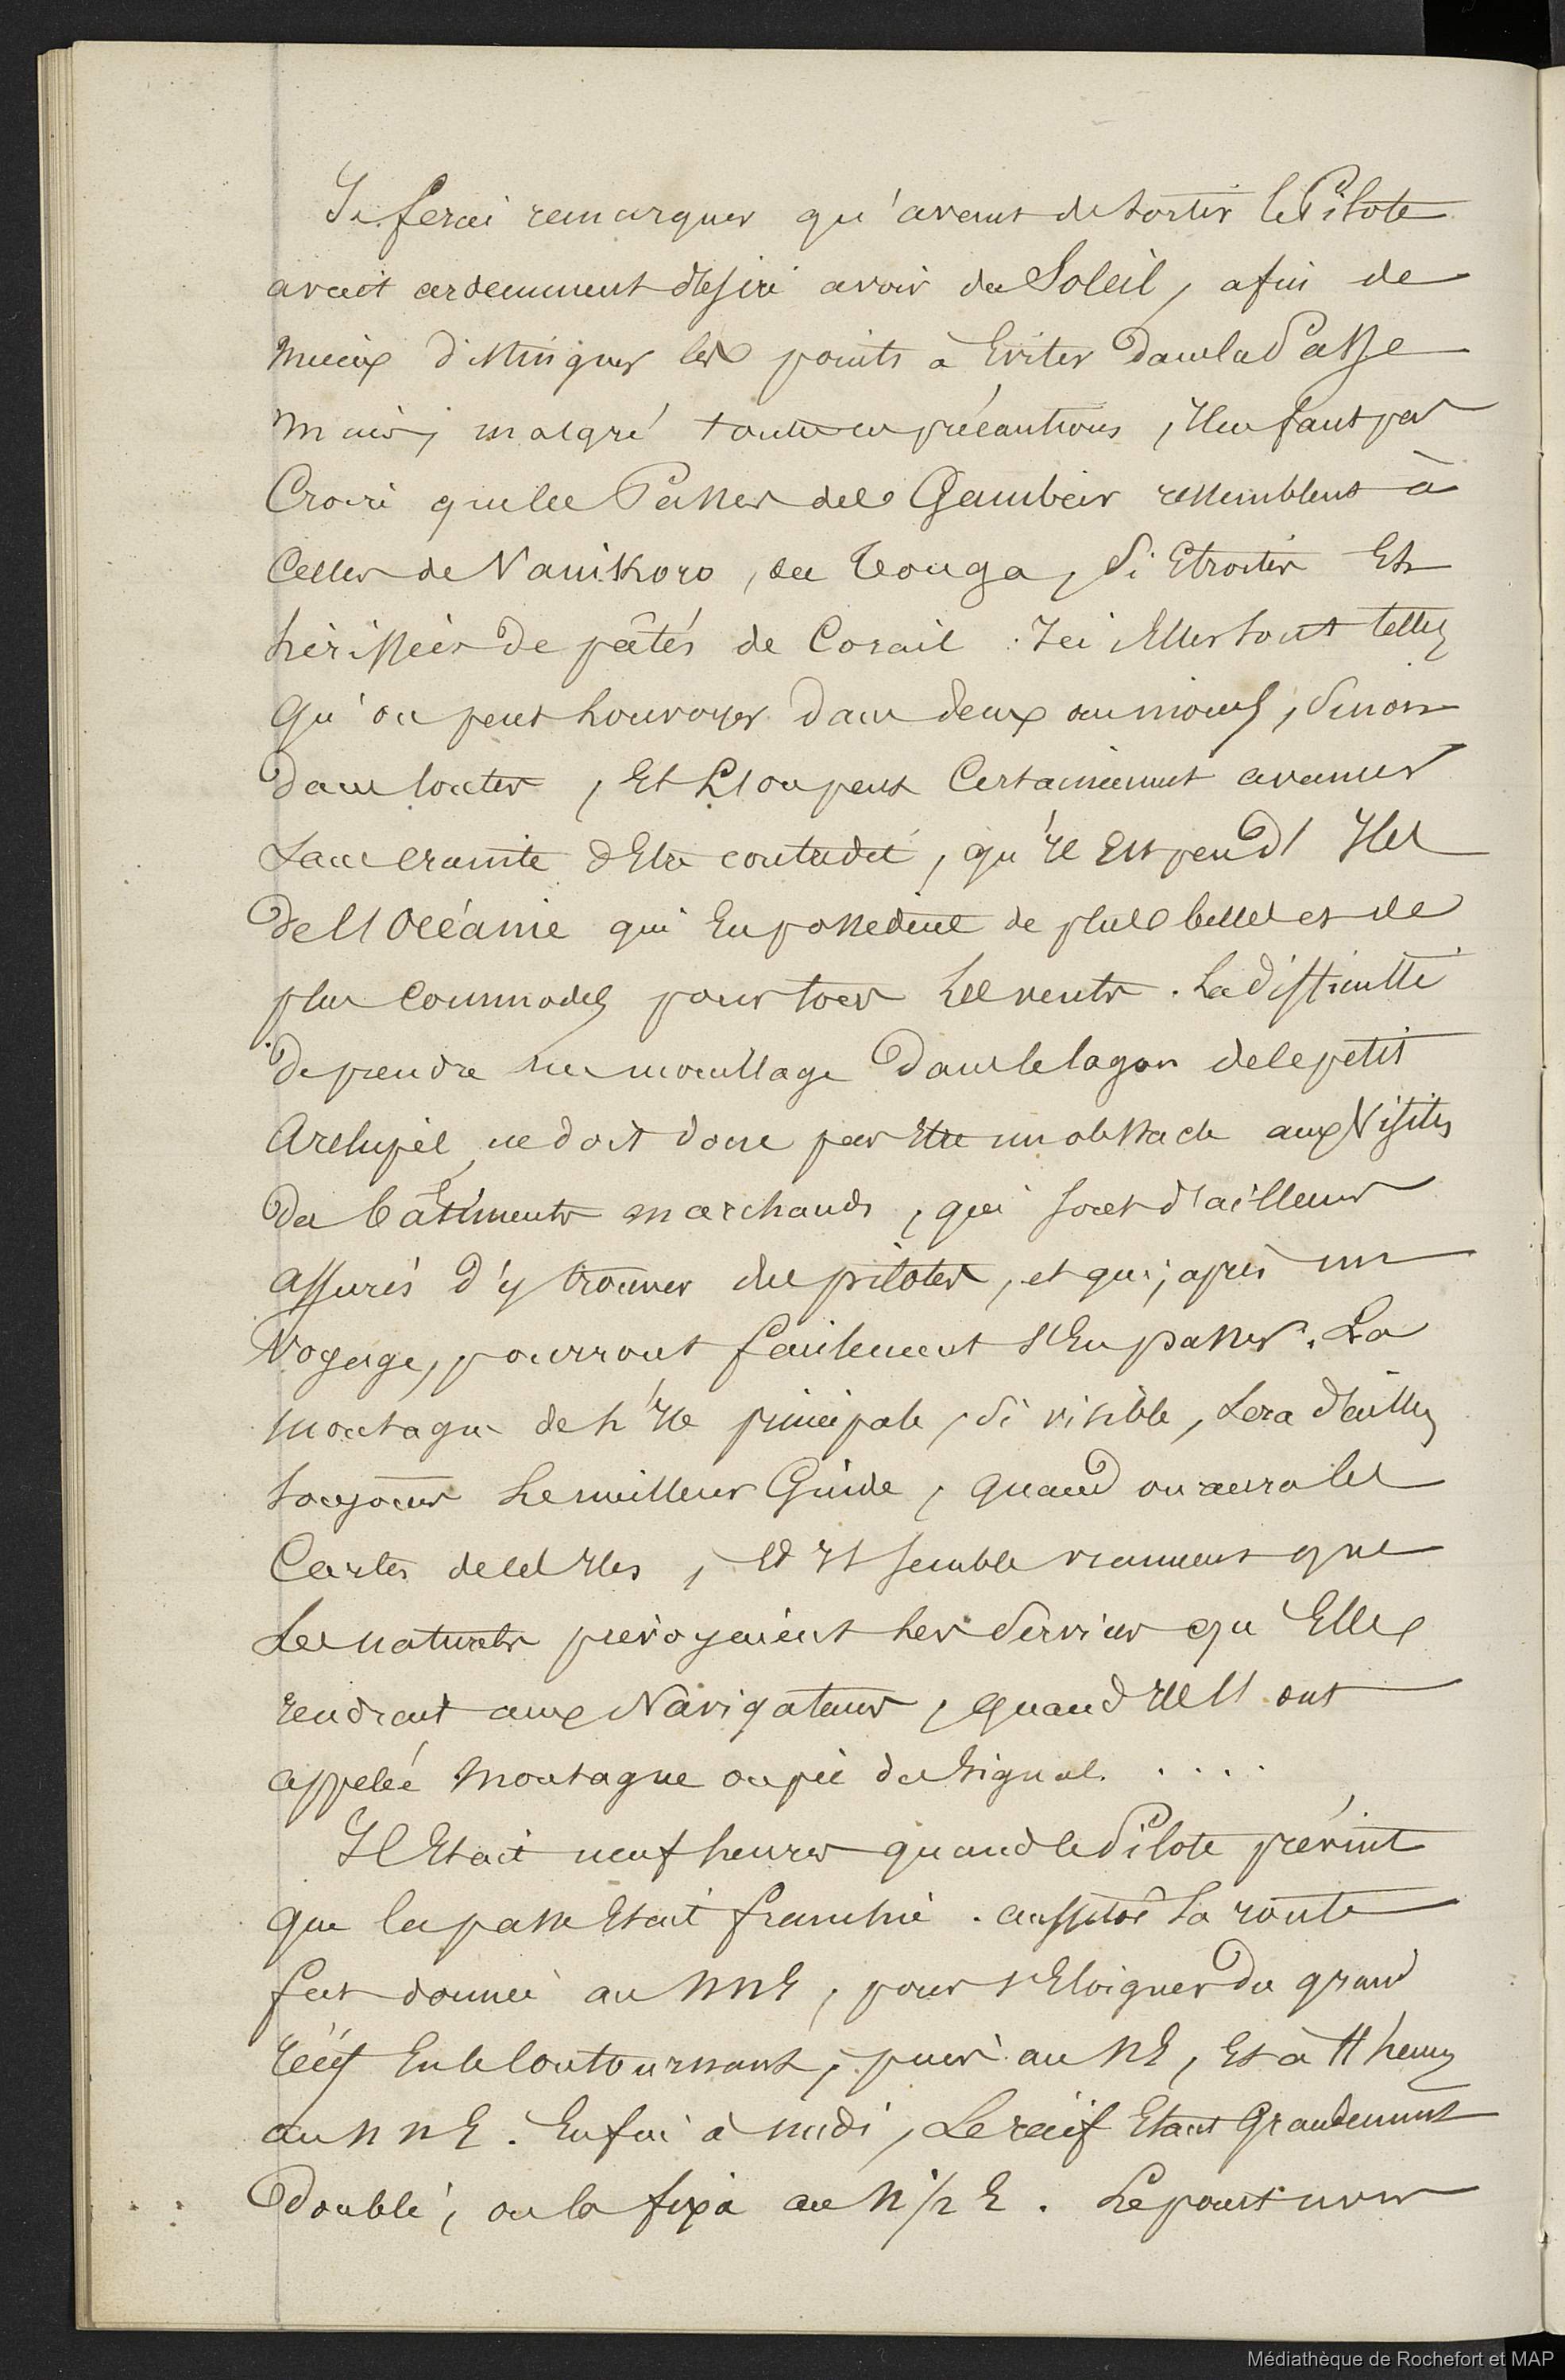 Je ferai remarquer qu'avant de sortir le Pilote
avait ardemment desiré avoir du Soleil, afin de
mieux distinguer les points à Eviter dans la Passe
mais, malgré toutes ces précautions, Il ne faut pas
Croire que les Passes des Gambier ressemblent à
Celles de Vanikoro, de Tonga, si Etroites Et
hérissées de pâtés de Corail. Ici Elles sont telles
qu'on peut louvoyer dans deux au moins, sinon
dans toutes, Et l'on peut Certainement avancer
sans crainte d'Etre contredit, qu'Il Est peu d'Iles
de l'Océanie qui En possedent de plus belles et de
plus Commodes pour tous les vents. La difficulté
de prendre un mouillage dans le lagon de ce petit
Archipel, ne doit donc pas Etre un obstacle aux Visites
des bâtiments marchands, qui sont d'ailleurs
assurés d'y trouver des pilotes, et qui, après un
Voyage, pourront facilement s'En passer. La
montagne de l'Ile principale, si visible, sera d'ailleurs
toujours le meilleur Guide, quand on aura les
Cartes de ces Iles, Et Il semble vraiment que
Les naturels prévoyaient les Services qu'Elle
rendrait aux Navigateurs, quand Ils l'ont
appelée Montagne ou pic du Signal. ....
Il Etait neuf heures quand le Pilote prévint
que la passe Etait franchie. aussitot la route
fut donnée au NNE, pour s'Eloigner du grand
récif En le Contournant, puis au NE, Et à 11 heures
au NNE. Enfin à midi, Le récif Etant Grandement
Doublé, on la fixa au N 1/2 E. Le point nous